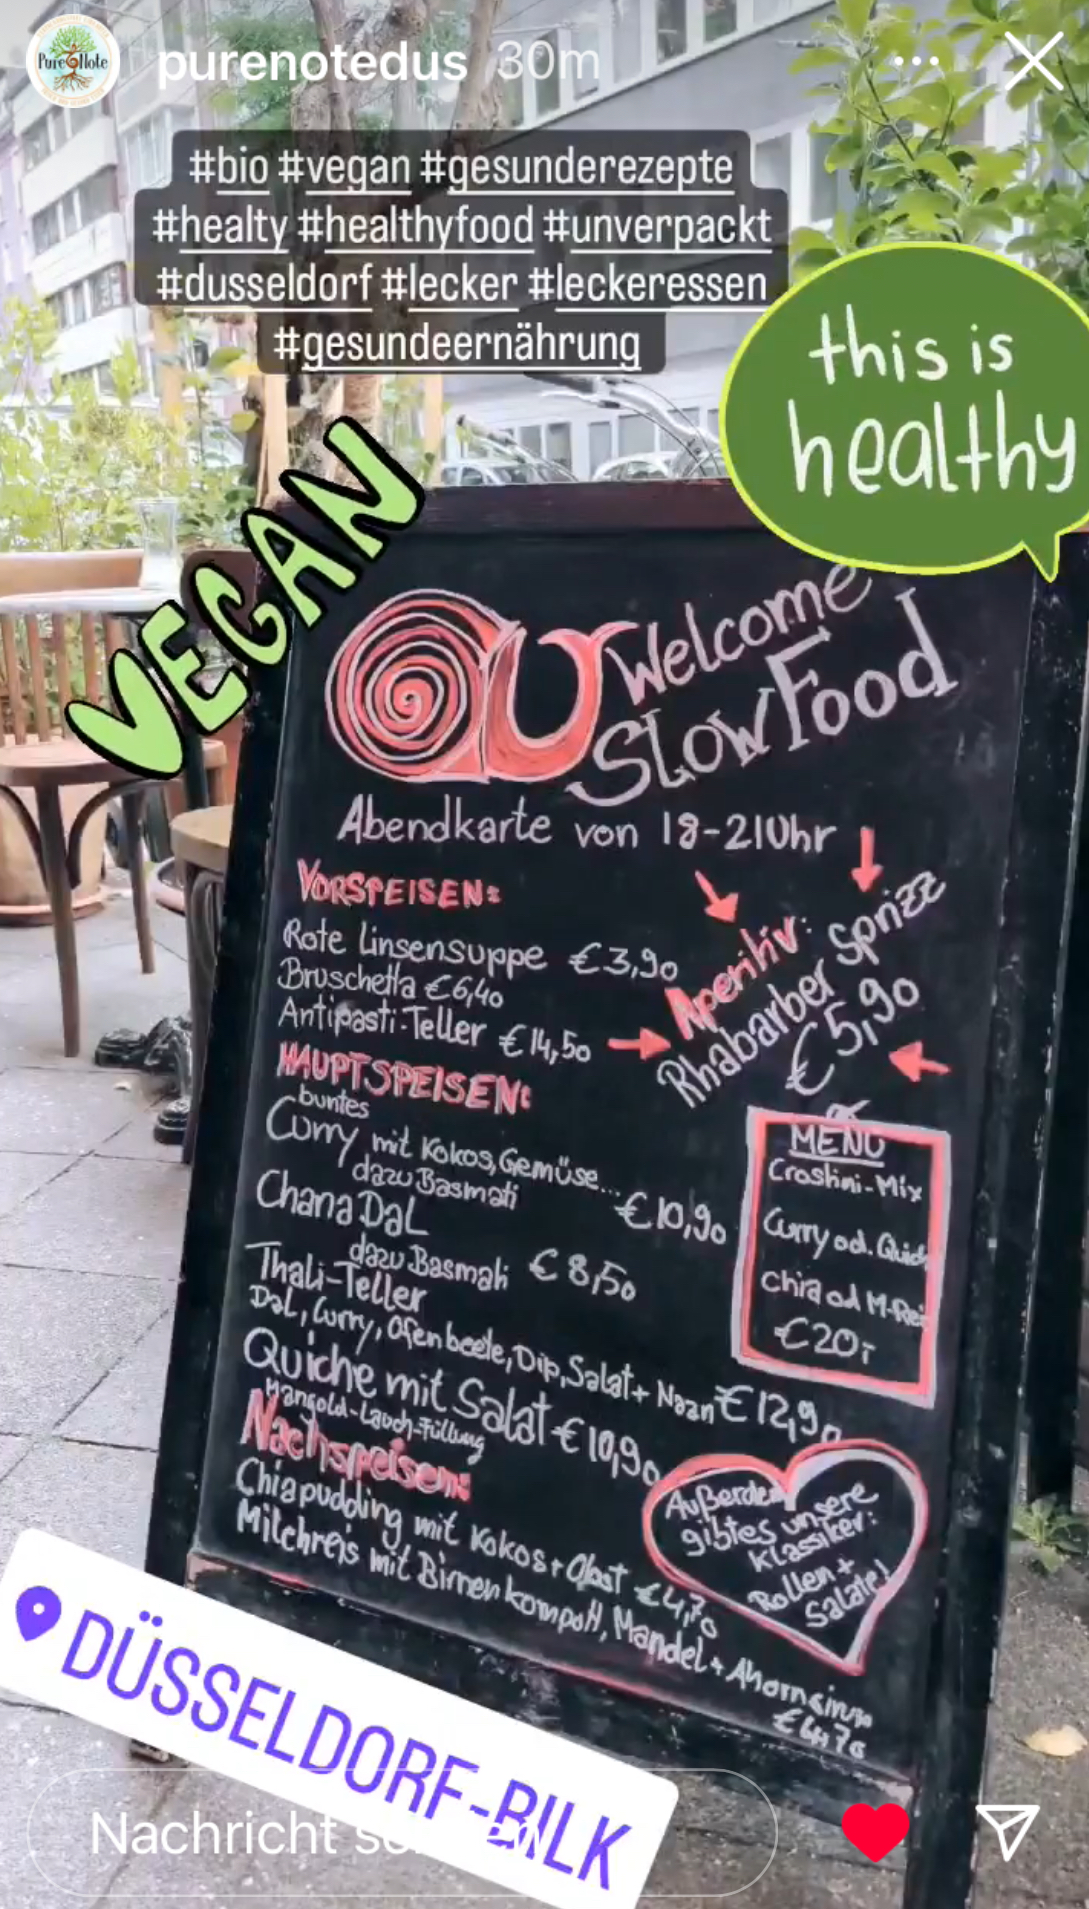 Pure Note
purenotedus 30m
#bio #vegan #gesunderezepte
#healty #healthyfood #unverpackt
#dusseldorf #lecker #leckeressen
#gesundeernährung
this is
healthy
VEGAN
Welcome
SLOWFOOD
Abendkarte von 18-21Uhr
VORSPEISEN:
Rote Linsensuppe €3,90
Bruschetta €6,40
Antipasti-Teller €14,50
Aperitiv:
Rhabarber Sprizz
€5,90
HAUPTSPEISEN:
buntes
Curry mit Kokos, Gemüse...
dazu Basmati
€10,90
Chana DaL
dazu Basmati €8,50
Thali-Teller
Dal, Curry, Ofenbeete, Dip, Salat + Naan €12,90
Quiche mit Salat €10,90
Mangold-Lauch-Füllung
MENÜ
Crostini-Mix
Curry od.
Chia od M-Rei
€20,-
Nachspeisen:
Chiapudding mit Kokos + Obst €4,70
Milchreis mit Birnenkompott, Mandel + Ahornsirup
€4,70
Außerdem
gibtes unsere
Klassiker:
Rollen +
Salate!
DÜSSELDORF-BILK
Nachricht